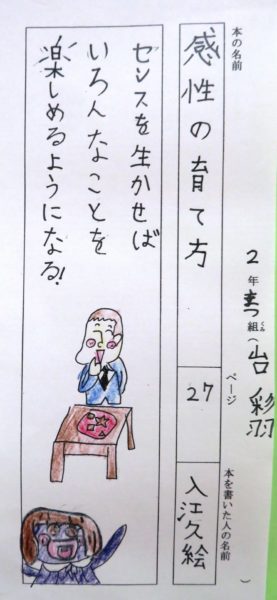 2年 組(台 彩羽)
くみ
本の名前
感性の育て方
ページ
27
本を書いた人の名前
入江久絵
センスを生かせば
いろんなことを
楽しめるようになる!